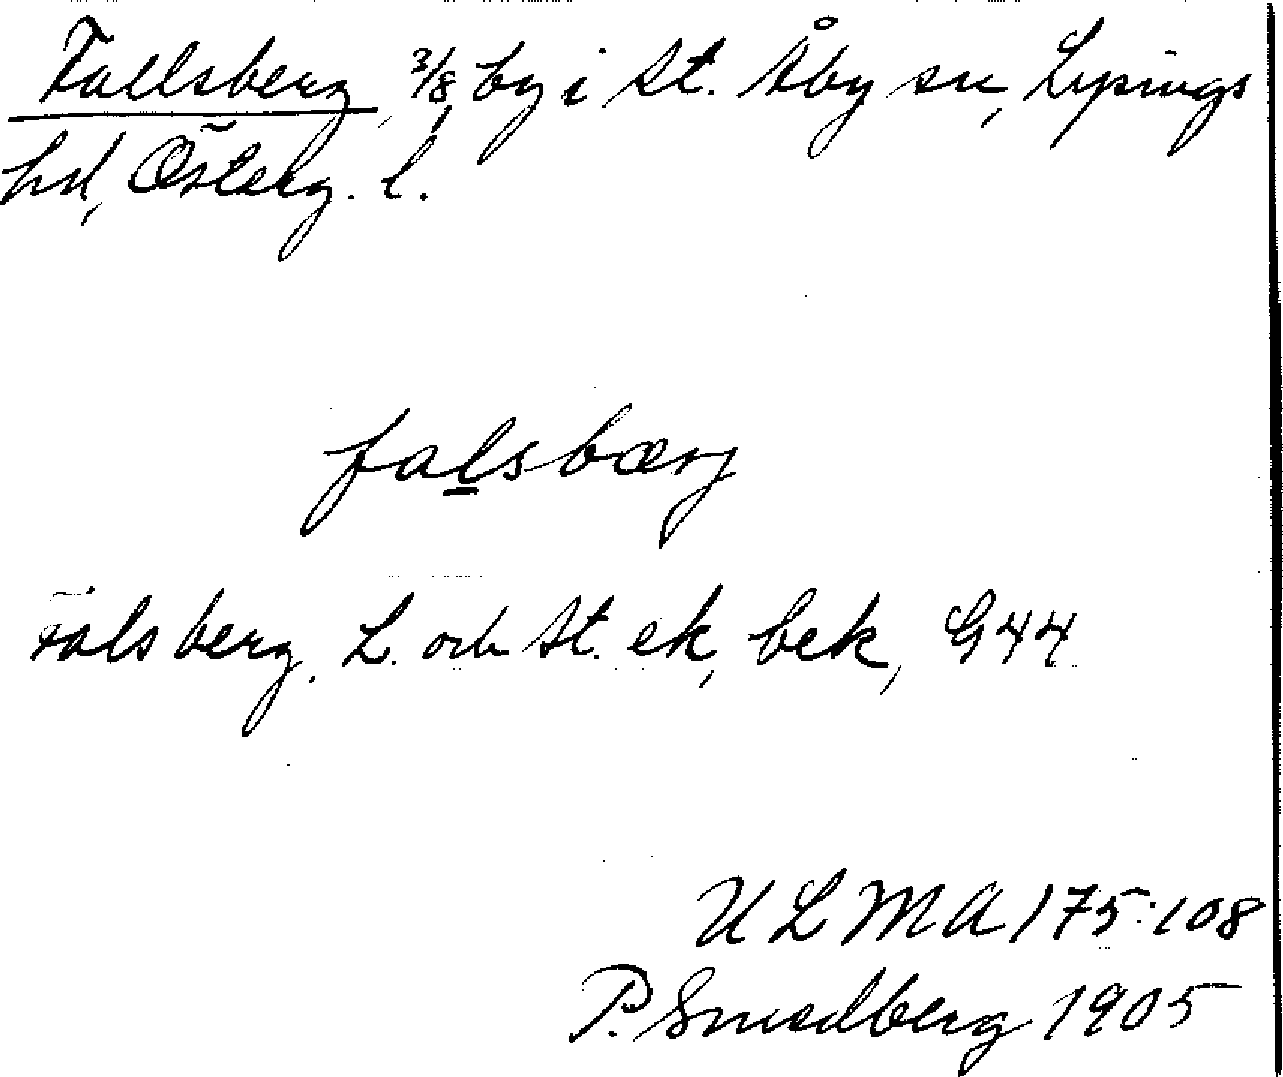 Fallsberg, 3/8, by i St. Åby sn, Lysings
hd, Österg. l.
falsbærj
Falsberg, L. och St. ek, bek, G44
ULMA 175:108
P. Smedberg 1905